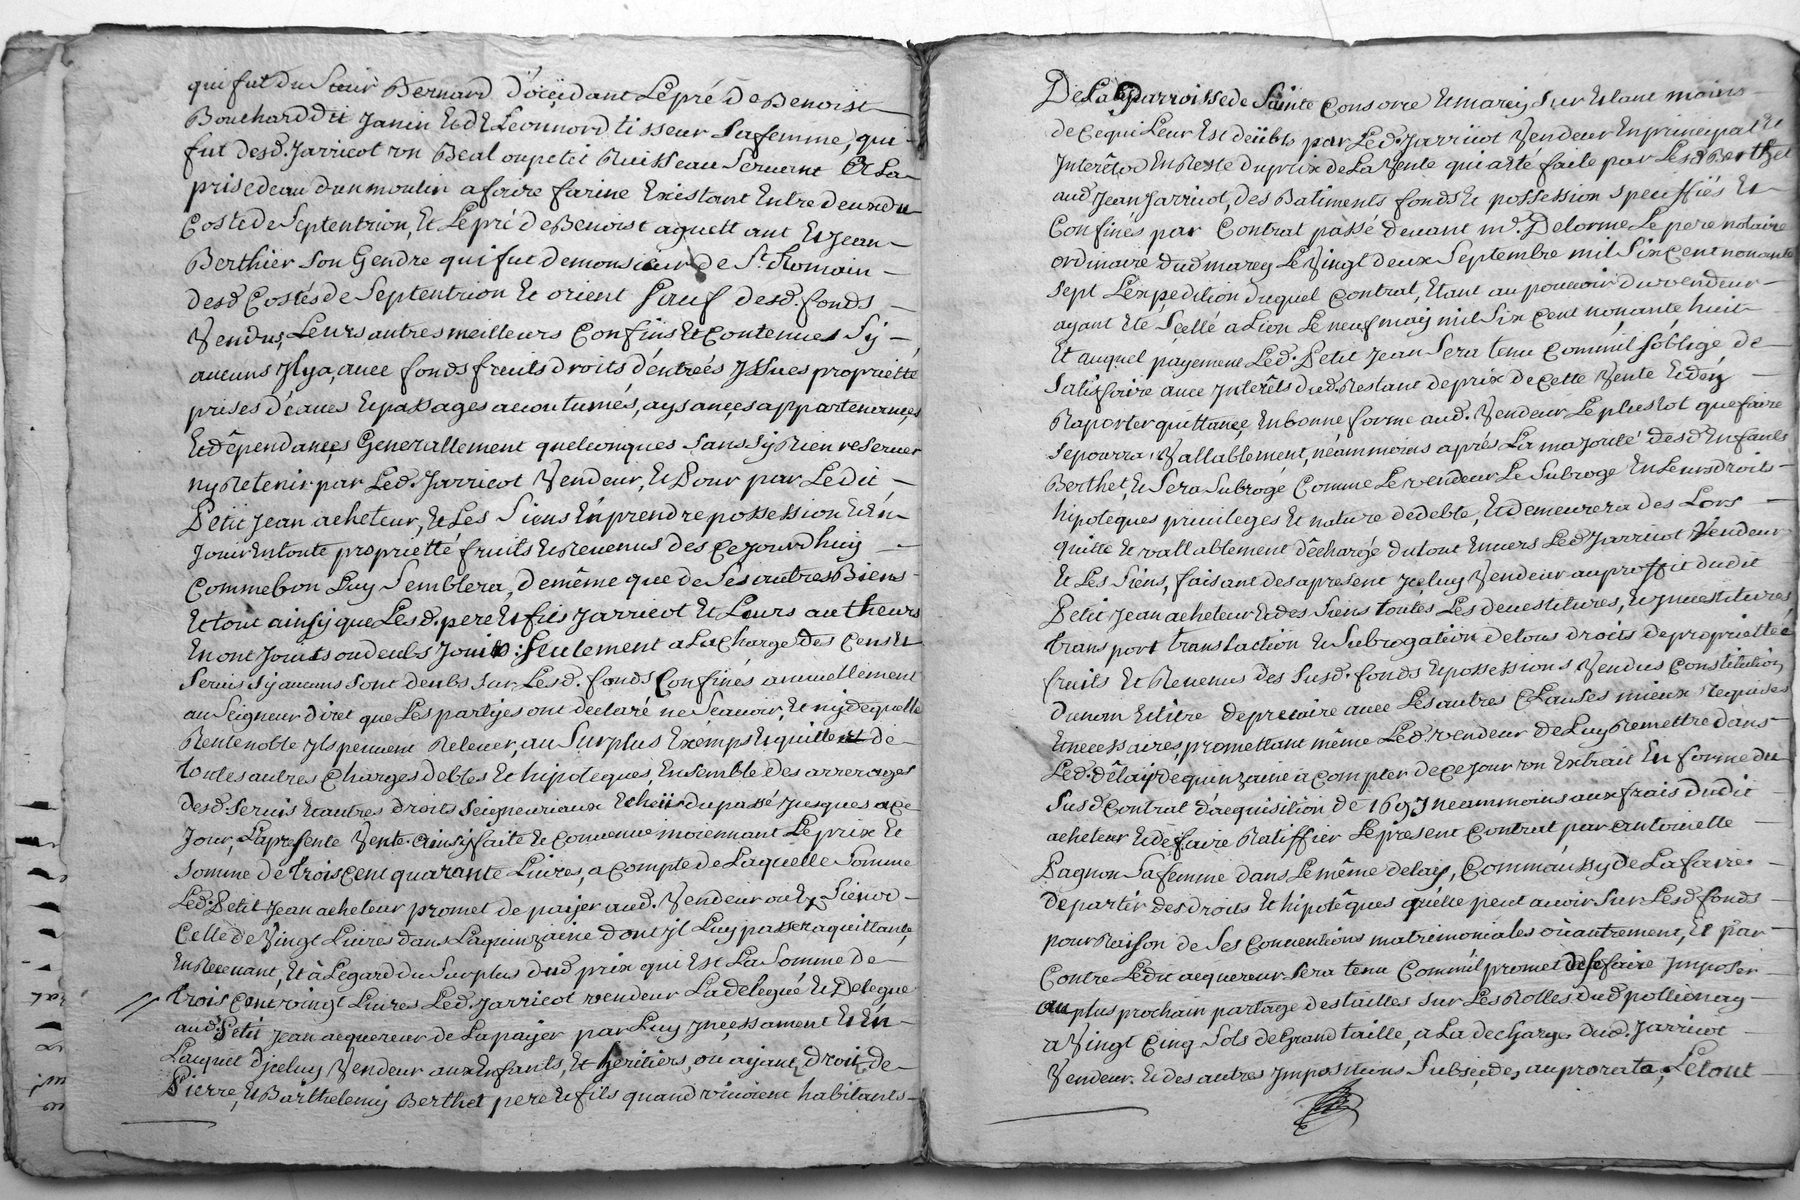 qui fut du Sieur Bernard d'occidant Le pré De Benoist
Bouchard dit Janin Et d'Eleonnord tisseur Sa femme, qui
fut desd. Jarricot un Beal ou petit Ruisseau Servant A La
prise deau dun moulin a faire farine Existant Entre deux du
Costé de Septentrion, Et Le pré de Benoist aquettant Et Jean
Berthier Son Gendre qui fut de monsieur de St. Romain
desd. Costés de Septentrion Et orient Sauf desd. fonds
Vendus, Leurs autres meilleurs Confins Et Contenues Sy
aucuns Jl y a, avec fonds fruits droits d'entrées Jssues proprietté
prises d'eaues Et passages accoutumés, aysances appartenances
Et dépendances Generallement quelconques Sans Sy Rien reserver
ny Retenir par Led. Jarricot Vendeur, Et Pour par Ledit
Petit Jean acheteur, Et Les Siens En prendre possession Et En
Jouir En toute propriétté fruits Et Revenus des Cejourdhuy
Comme bon Luy Semblera, de même que de Ses autres Biens
Et tout ainsy que Lesd. pere Et fils Jarricot Et Leurs autheurs
En ont Jouits ou deubs Jouir Seulement a La Charge Des Cens Et
Servis Sy aucuns Sont deubs Sur Lesd. fonds Confinés annuellement
au Seigneur diret que Les partyes ont declaré ne Scavoir, Et ny de quelle
Rente noble Jls peuvent Relever, au Surplus Exempts Et quitte de
toutes autres Charges debtes Et hipoteques, Ensemble des arrerages
desd. Servis Et autres droits Seigneuriaux Echeus du passé Jusques a Ce
Jour, La presente Vente ainsy faite Et Convenue moiennant Le prix Et
Somme de trois Cent quarante Livres, a Compte de Laquelle Somme
Led. Petit Jean acheteur promet de payer aud. Vendeur ou Es Siens
Celle de Vingt Livres dans La quinzaine dont Jl Luy passera quittance
En Recevant, Et à Legard du Surplus dud. prix qui Est La Somme de
trois Cent vingt Livres Led. Jarricot vendeur La delegué Et Delegue
aud. Petit Jean acquereur de La payer par Luy Jncessament Et En
L'acquit d'Jceluy Vendeur aux Enfants, Et heritiers, ou ayant droit de
Pierre, Et Barthelemy Berthet pere Et fils quand vivoient habitants
De La Parroisse de Sainte Consorce Et marcy Sur Et tant moins
de Ce qui Leur Est deübt par Led. Jarricot Vendeur En principal Et
Interêts En Reste du prix de La Vente qui a été faite par Lesd. Berthet
aud. Jean Jarricot, des Batiments fonds Et possession Speciffiés Et
Confinés par Contrat passé devant me. Delorme Le pere notaire
ordinaire dud. marcy Le Vingt deux Septembre mil Six Cent nonante
Sept L'expedition duquel Contrat, Etant au pouvoir du vendeur
ayant Eté Scellé a Lion Le neuf may mil Six Cent nonante huit
Et auquel payement Led. Petit Jean Sera tenu Comm'il S'oblige de
Satisfaire avec Interêts dud. Restant de prix de Cette Vente Et d'en
Raporter quittance En bonne forme aud. Vendeur Le plustot que faire
Se pourra Vallablement, néammoins après La majorité desd. Enfants
Berthet, Et Sera Subrogé Comme Le vendeur Le Subroge En Leurs droits
hipoteques privileges Et nature de debte, Et demeurera des Lors
quitte Et vallablement déchargé du tout Envers Led. Jarricot Vendeur
Et Les Siens, faisant des apresent Jceluy Vendeur au proffit dudit
Petit Jean acheteur Et des Siens toutes Les devestitures, Et Jnvestitures
transport translaction Et Subrogation de tous droits de propriettée
fruits Et Revenus des Susd. fonds Et possessions Vendus Constitution
du nom Et titre de precaire avec Les autres Clauses mieux Requises
Et necessaires, promettant même Led. vendeur de Luy Remettre dans
Led. délay de quinzaine à Compter de Ce Jour un Extrait En forme du
Susd. Contrat d'acquisition de 1697 neammoins aux frais dudit
acheteur Et de faire Ratiffier Le present Contrat par antoinette
Pagnon Sa femme dans Le même delay, Comm'aussy de La faire
departir des droits Et hipotêques qu'elle peut avoir Sur Lesd. fonds
pour Raison de Ses Conventions matrimoniales où autrement, Et par
Contre Ledit acquereur Sera tenu Comm'il promet de Se faire Jmposer
au plus prochain partage des tailles Sur Les Rolles dud. pollionay
a Vingt Cinq Sols de Grand taille, a La decharge dud. Jarricot
Vendeur Et des autres Jmpositions Subside, au prorata, Le tout